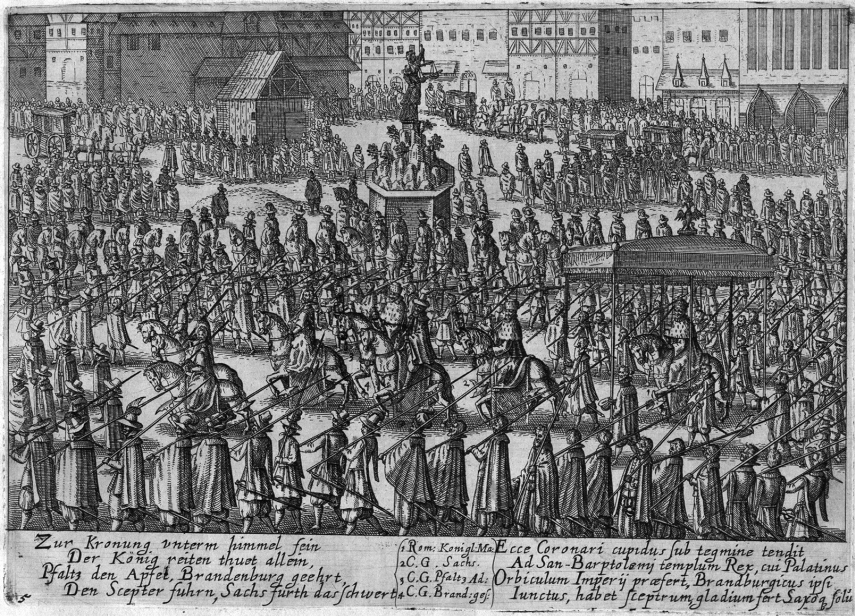 Zur Kronung vnterm himmel fein
Der König reiten thuet allein,
Pfaltz den Apfel, Brandenburg geehrt,
Den Scepter fuhrn, Sachs furth das schwert
5
1 Rom: Konigl: Ma
2 C. G. Sachs.
3 C. G. Pfaltz Ad:
4 C. G. Brand: ges:
Ecce Coronari cupidus sub tegmine tendit
Ad San-Barptolemj templum Rex, cui Palatinus
Orbiculum Imperij præfert, Brandburgicus ipsi
Iunctus, habet sceptrum, gladium fert Saxoq, solus